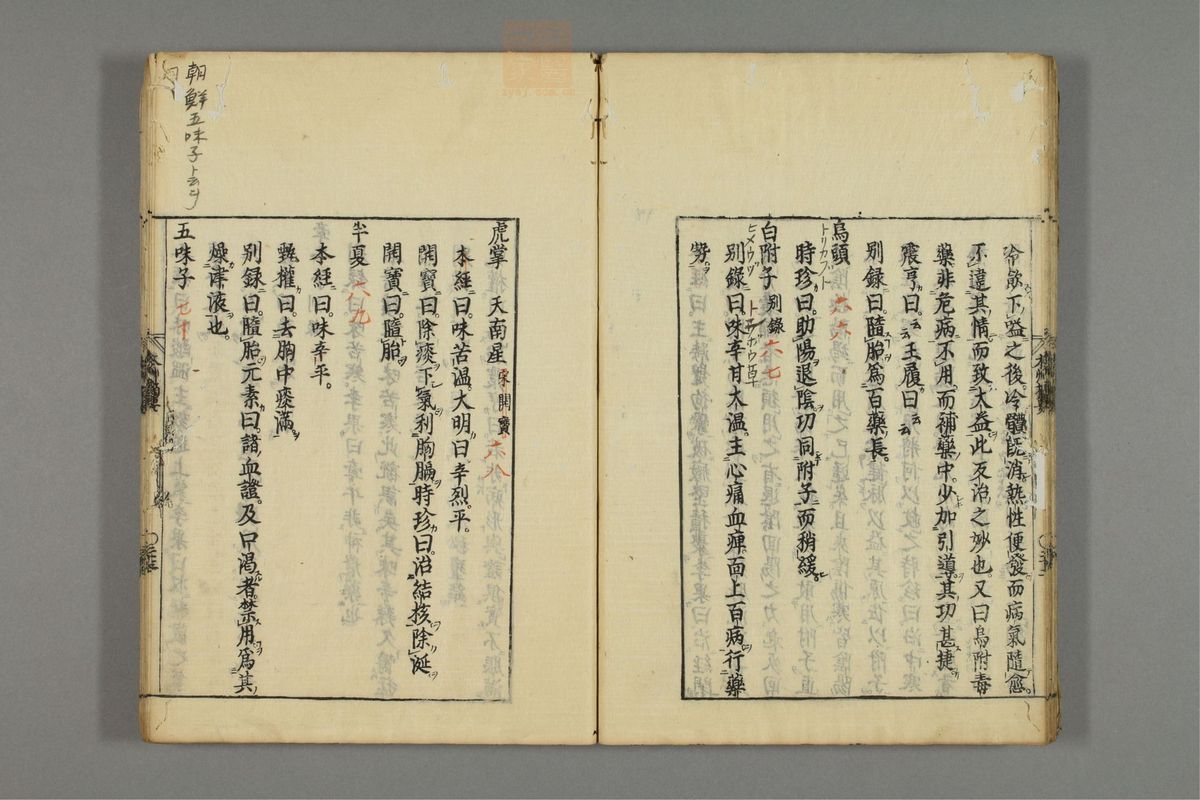 冷飲下嗌之後冷體既消熱性便發而病氣隨愈
不違其情而致大益此反治之妙也又曰烏附毒
藥非危病不用而補藥中少加引導其功甚捷
震亨曰云云王履曰云云
別録曰隨胎為百藥長
烏頭 六六
トリカフト
時珍曰助陽退陰功同附子而稍緩
白附子 別錄 六七
別錄曰味辛甘大温主心痛血痺面上百病行藥
勢
虎掌 天南星 宋開寶 六八
本經曰味苦温大明曰辛烈平
開寶曰除痰下氣利胸膈時珍曰治結核除涎
開寶曰隨胎
半夏 六九
本經曰味辛平
甄權曰去胸中痰滿
別録曰隨胎元素曰諸血證及口渴者禁用為其
燥津液也
五味子 七十
朝鮮五味子